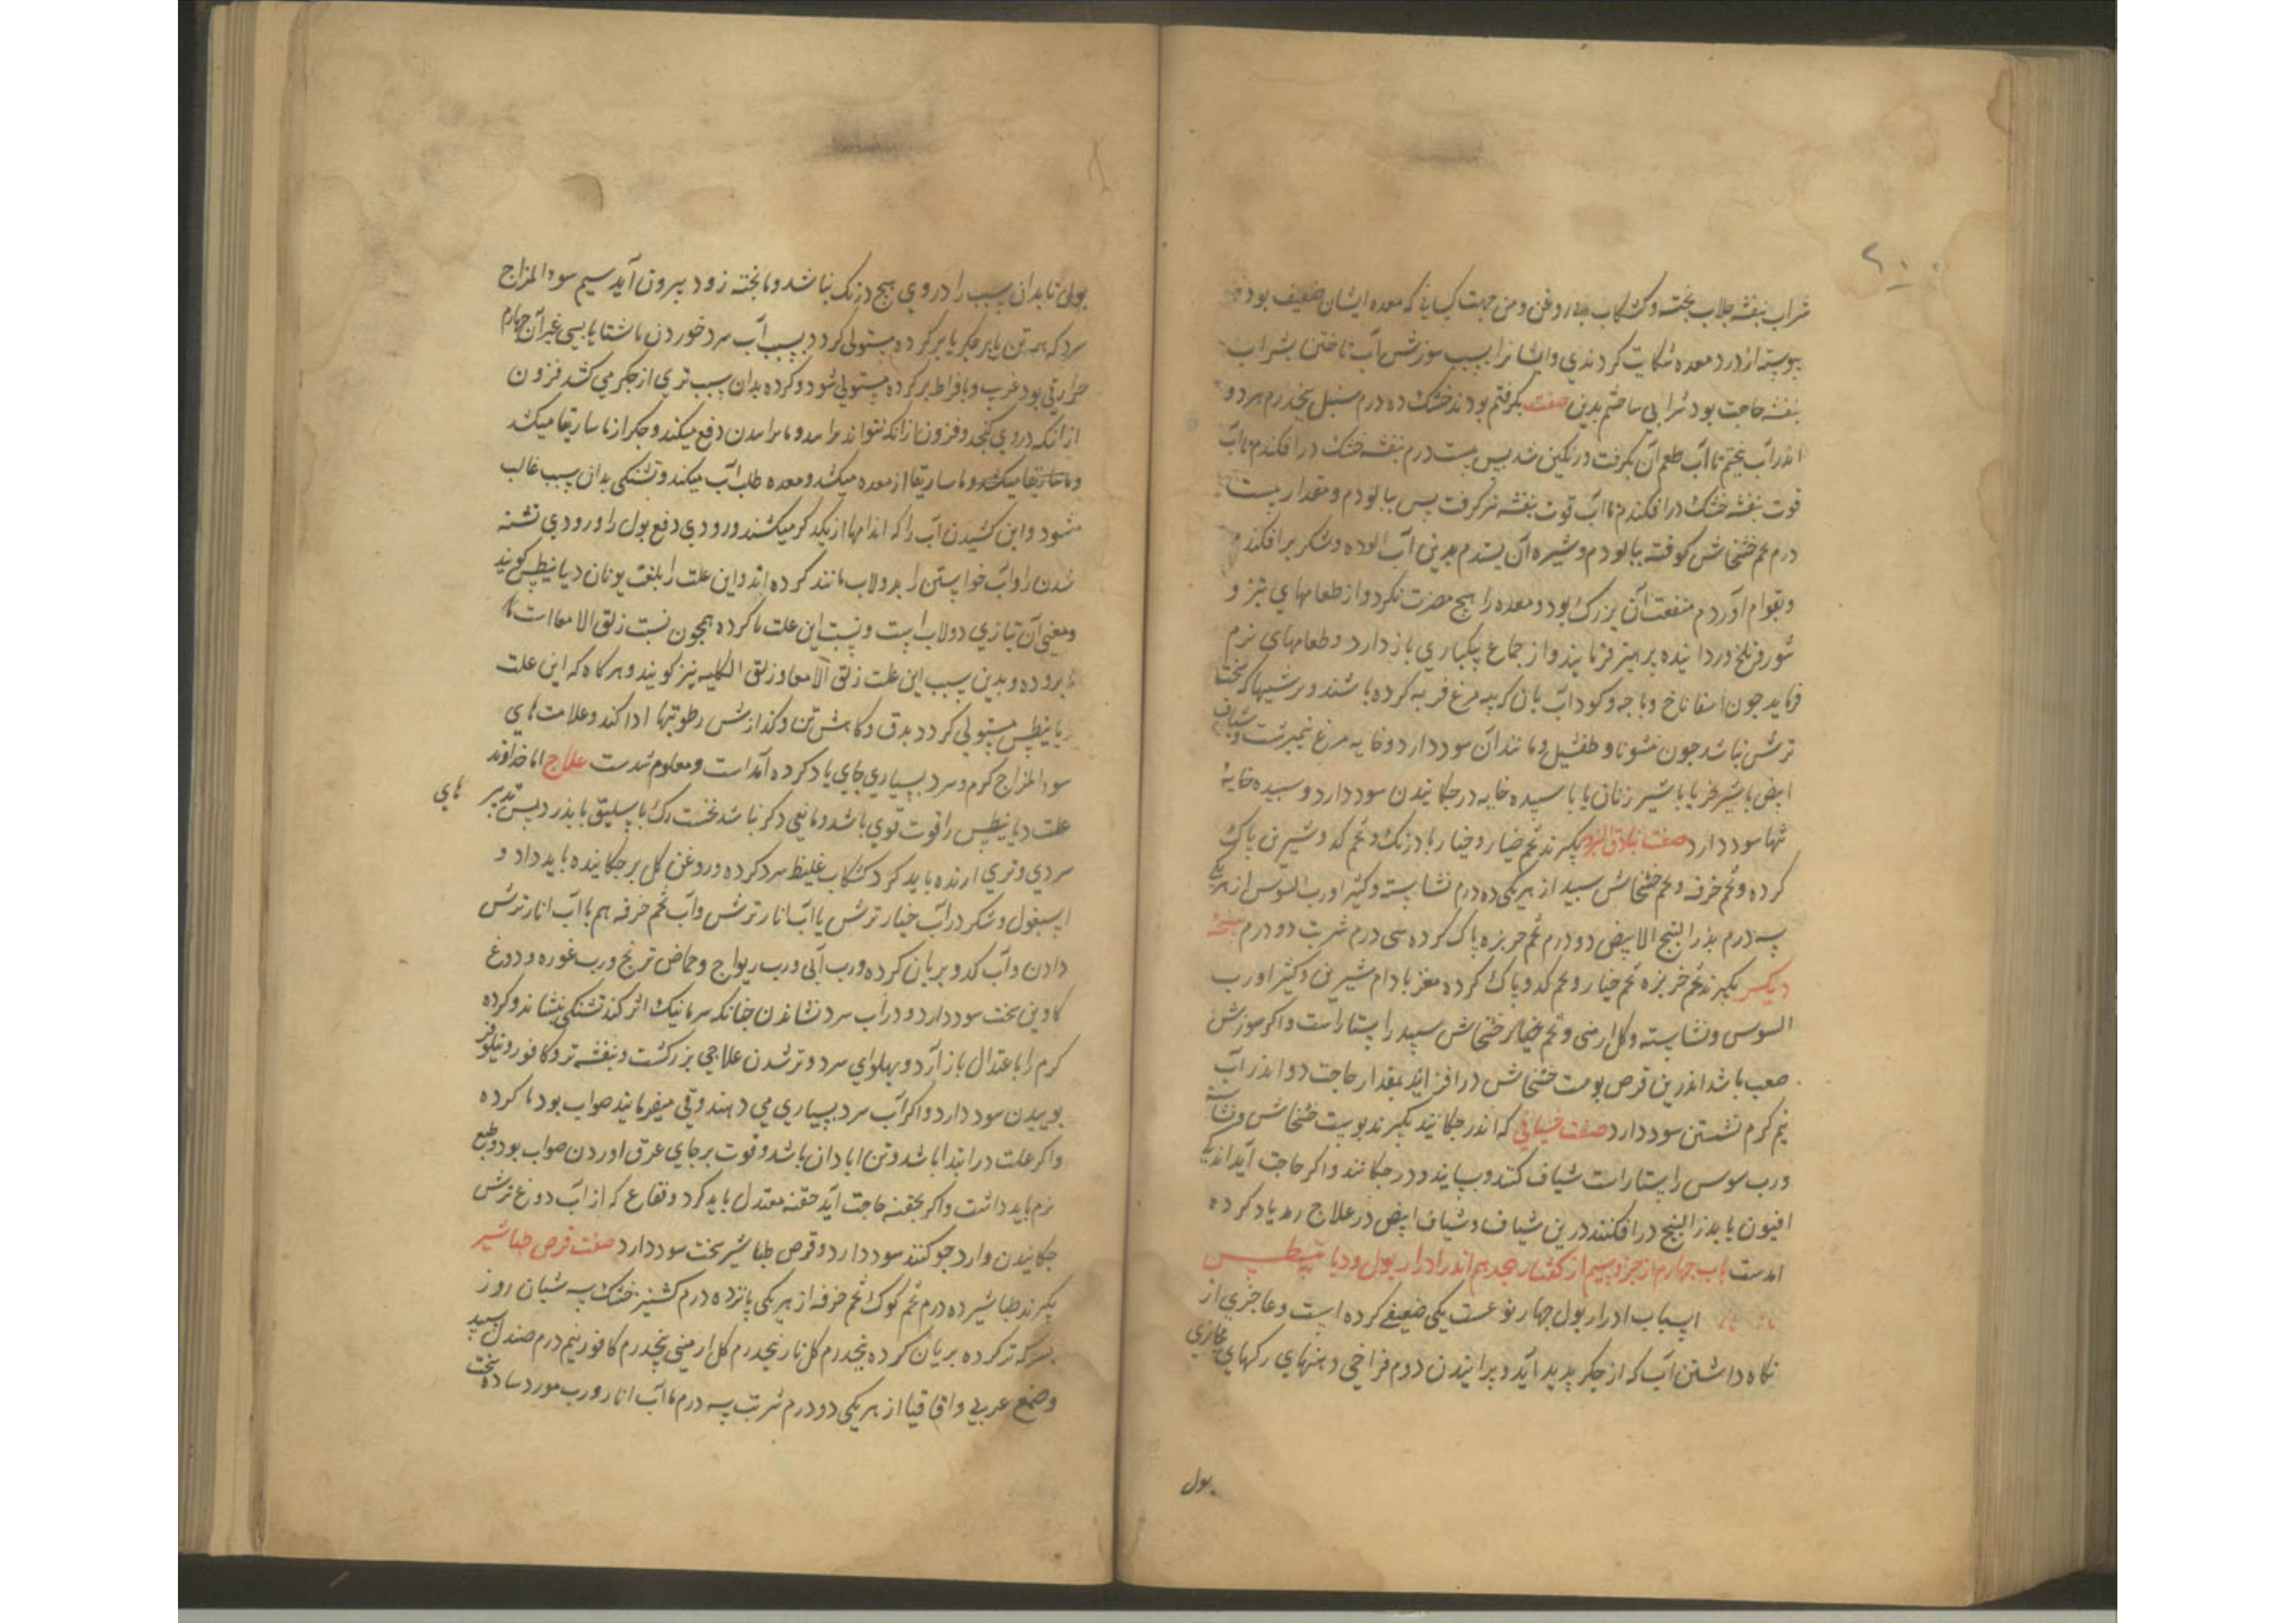 شراب بنفشه جلاب پخته و کشکاب بی روغن و من جهت کسانی که معده ایشان ضعیف بود
پیوسته از درد معده شکایت کردندی و ایشانرا بسبب سوزش آب تاختن بشراب
بنفشه حاجت بود شرابی ساختم بدین صفت بگرفتم بودند خشک ده درم سنبل پنجدرم هر دو
اندر آب پختم تا آب طعم آن بگرفت و رنگین شد پس بیست درم بنفشه خشک درافکندم تا آب
قوت بنفشه خشک درافکندم تا آب قوت بنفشه نیز کرفت پس بپالودم و مقدار بیست
درم تخم خشخاش کوفته بپالودم و شیره آن بستدم بدین آب الوده و شکر برافکندم
و بقوام آوردم منفعت آن بزرک بود و معده را هیچ مضرت نکرد و از طعامهای تیز و
شور و تلخ و زداینده پرهیز فرمایند و از جماع یکبارکی باز دارد و طعامهای نرم
فرماید جون اسفاناخ و باجه و کدو اب بان که به مرغ فربه کرده باشند و ترشیها که سخت
ترش نباشد جون نیشو نا و طفشیل و مانند آن سود دارد و خایه مرغ نیمبرشت و شیاف
ابیض با شیر خر یا با شیر زنان یا با سپیده خایه در جکانیدن سود دارد و سپیده خایه
تنها سود دارد صفت بنادق البزور بکیرند تخم خیار و خیار بادرنک و تخم کدو شیرین پاک
کرده و تخم خرفه و تخم خشخاش سپید از هر یکی ده درم نشاسته و کثیرا و رب السوس از هر یکی
سه درم بذر البنج الابیض دو درم تخم خربزه پاک کرده سی درم شربت دو درم نسخه
دیکر بکیرند تخم خربزه تخم خیار و تخم کدو پاک کرده مغز بادام شیرین و کثیرا و رب
السوس و نشاسته و کل ارمنی و تخم خیار خشخاش سپید راستاراست و اکر سوزش
صعب باشد اندرین قرص پوست خشخاش درافزایند بمقدار حاجت دو اندر آب
نیم کرم نشستن سود دارد صفت شیافی که اندر جکانند بکیرند پوست خشخاش و نشاسته
و رب سوس راستاراست شیاف کنند و بسایند و در جکانند و اکر حاجت آید اندکی
افیون یا بذر البنج درافکنند درین شیاف و شیاف ابیض در علاج رمد یاد کرده
امدست باب جهارم از جزو سیم از کفتار هجدهم اندر ادرار بول و دیابیطس
اسباب ادرار بول جهار نوعست یکی ضعیفی کرده است و عاجزی از
نکاه داشتن آب که از جکر پدید آید و برانیدن دوم فراخی دهنهای رکهای مجاری
بول
بولی تا بدان سبب را در وی هیج درنک نباشد و نابخته زود بیرون آید سیم سوء المزاج
سرد که بر همه تن یا بر جکر یا بر کرده مستولی کردد بسبب آب سرد خوردن ناشتا یا بسببی غیر آن جهارم
حرارتی بود غریب و بافراط بر کرده مستولی شود و کرده بدان سبب تری از جکر می کشد فزون
از انکه در وی کنجد و فزون از انکه نتواند برامدو تا برامدن دفع میکند و جکر از ماساریقا میکشد
و ماساریقا از معده میکشد و معده طلب آب میکند و تشنکی بدان سبب غالب
میشود و این کشیدن آب را که اندامها از یکدکر میکشند و زودی دفع بول را و زودی تشنه
شدن را و آب خواستن را بدولاب مانند کرده اند و این علت را بلغت یونان دیابیطس کویند
و معنی آن بتازی دولاب است و نسبت این علت با کرده همجون نسبت زلق الامعا است با
روده و بدین سبب این علت زلق الامعا و زلق الکلیه نیز کویند و هر کاه که این علت
دیابیطس مستولی کردد بدق و کاهش تن و کدازش رطوبتها ادا کند و علامت های
سوء المزاج کرم و سرد بسیاری جای یاد کرده آمداست و معلوم شدست علاج اما خداوند
علت دیابیطس را قوت قوی باشد و مانعی دکر نباشد نخست رک باسلیق باید زد پس تدبیر های
سردی و تری ارنده باید کرد کشکاب غلیظ سرد کرده و روغن کل بر جکانیده باید داد و
اسبغول و شکر در آب خیار ترش یا آب انار ترش و آب تخم خرفه هم با آب انار ترش
دادن و آب کدو بریان کرده و رب آبی و رب ریواج و حماض ترنج و رب غوره و دوغ
کاوین سخت سود دارد و در آب سرد نشاندن جنانکه سرما نیک اثر کند تشنکی بنشاند و کرده
کرم را باعتدال باز آرد و بهلوای سرد و تر شدن علاجی بزرکست و بنفشه تر و کافور و نیلوفر
بوییدن سود دارد و اکر آب سرد بسیاری می دهند و قی میفرمایند صواب بود تا کرده
و اکر علت در ابتدا باشد و تن ابادان باشد و قوت بر جای عرق اوردن صواب بود و طبع
نرم باید داشت و اکر بحقنه حاجت آید حقنه معتدل باید کرد و فقاع که از آب دوغ ترش
جکانیدن و ارد جو کنند سود دارد و قرص طباشیر سخت سود دارد صفت قرص طباشیر
بکیرند طباشیر ده درم تخم کوک تخم خرفه از هر یکی پانزده درم کشنیز خشک سه شبان روز
بسرکه تر کرده بریان کرده پنجدرم کل نار پنجدرم کل ارمنی پنجدرم کافور نیم درم صندل سپید
و صمغ عربی و اقاقیا از هر یکی دو درم شربت سه درم با آب انار و رب مورد ساده سخت